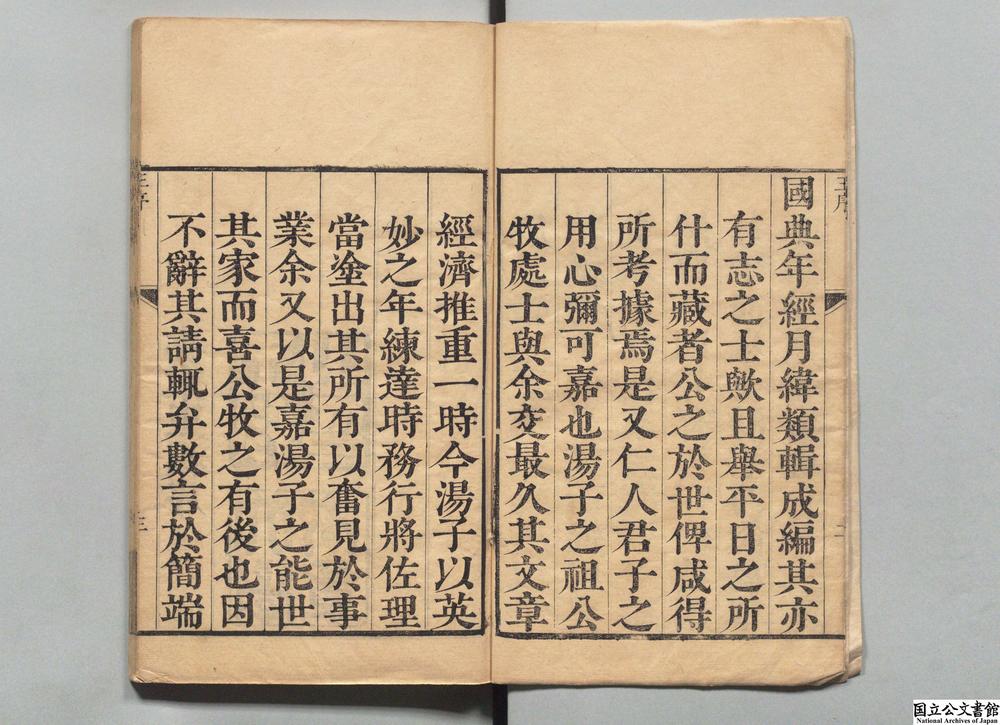 國典年經月緯類輯成編其亦
有志之士歟且舉平日之所
什而藏者公之於世俾咸得
所考據焉是又仁人君子之
用心彌可嘉也湯子之祖公
牧處士與余交最久其文章
經濟推重一時今湯子以英
妙之年練達時務行將佐理
當塗出其所有以奮見於事
業余又以是嘉湯子之能世
其家而喜公牧之有後也因
不辭其請輒弁數言於簡端
国立公文書館
National Archives of Japan